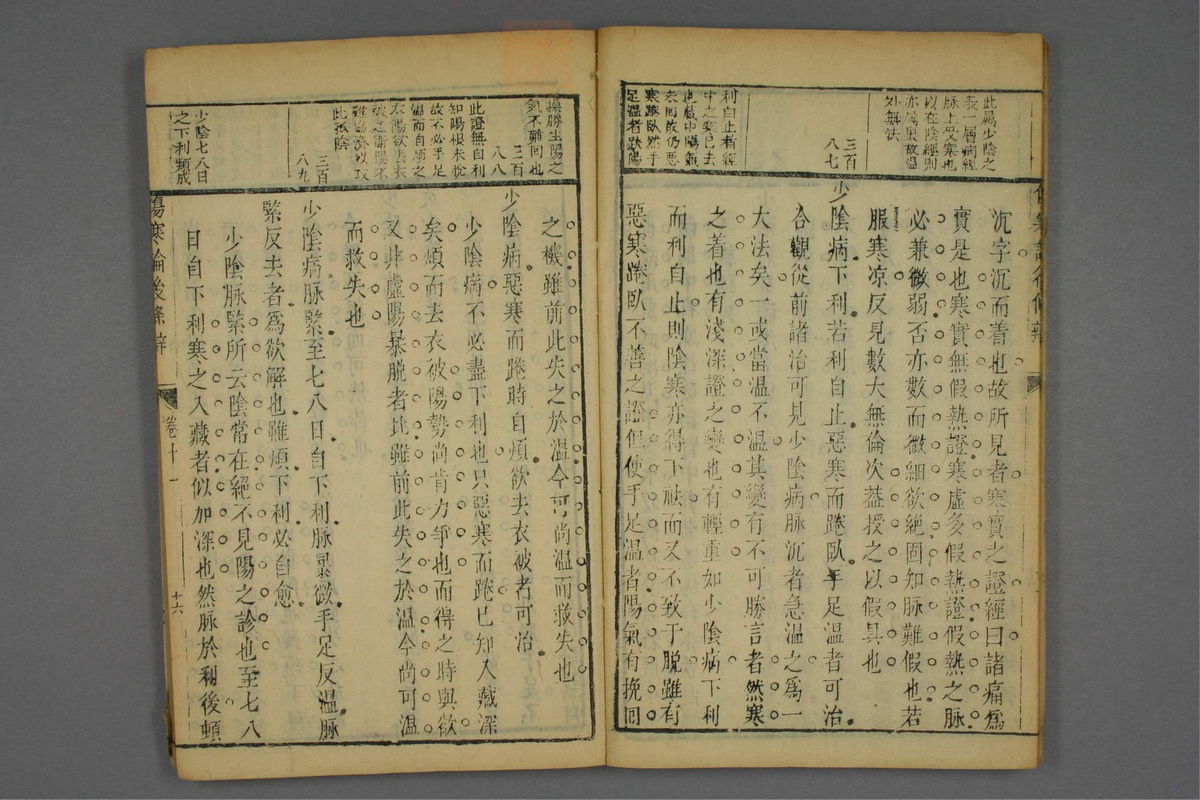 此屬少陰之
表一層病經
脉上受寒也
以在陰經則
亦屬裏故温
外無法
三百
八七
利自止者經
中之寒已去
也藏中陽氣
未回故仍惡
寒踡臥然手
足温者踡陽
沉字沉而着也故所見者寒實之證經曰諸痛爲
實是也寒實無假熱證寒虛多假熱證假熱之脉
必兼微弱否亦數而微細欲絕固知脉難假也若
服寒凉反見數大無倫次葢授之以假具也
少陰病下利若利自止惡寒而踡臥手足温者可治
合觀從前諸治可見少陰病脉沉者急温之爲一
大法矣一或當温不温其變有不可勝言者然寒
之着也有淺深證之變也有輕重如少陰病下利
而利自止則陰寒亦得下祛而又不致于脱雖有
惡寒踡臥不善之證但使手足温者陽氣有挽回
操勝生陽之
氣不難回也
三百
八八
此證無自利
知陽根未脫
故不必手足
温而自煩之
去陽欲去衣
被之衛陽不
難協濟以取
此孤陰
三百
八九
少陰七八日
之下利類成
之機雖前此失之於温今可尚温而救失也
少陰病惡寒而踡時自煩欲去衣被者可治
少陰病不必盡下利也只惡寒而踡已知入藏深
矣煩而去衣被陽勢尚肯力爭也而得之時與欲
又非虛陽暴脱者比雖前此失之於温今尚可温
而救失也
少陰病脉緊至七八日自下利脉暴微手足反温脉
緊反去者爲欲解也雖煩下利必自愈
少陰脉緊所云陰常在絕不見陽之診也至七八
日自下利寒之入藏者似加深也然脉於利後頓
傷寒論後條辨
卷十一
十六